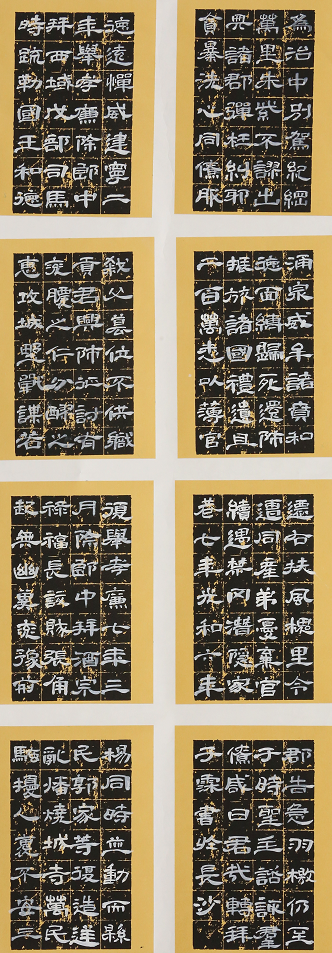 為治中別駕紀綱
萬里朱紫不謬出
典諸郡彈枉糾邪
貪暴洗心同僚服
德遠憚威建寧二
年舉孝廉除郎中
拜西域戊部司馬
時疏勒國王和德
弒父篡位不供職
貢君興師征討有
膿之仁分醪之
惠攻城野戰謀若
涌泉威牟諸賁和
德面縛歸死還師
振旅諸國禮遺且
二百萬悉以薄官
遷右扶風槐里令
遭同產弟憂棄官
續遇禁冈潛隱家
巷七年光和六年
復舉孝廉七年三
月除郎中拜酒泉
祿福長訞賊張角
起兵幽冀兗豫荊
楊同時並動而縣
民郭家等復造逆
亂燔燒城寺萬民
騷擾人褱不安三
郡告急羽檄仍至
于時聖主諮諏羣
僚咸曰君哉轉拜
子霖書於長沙